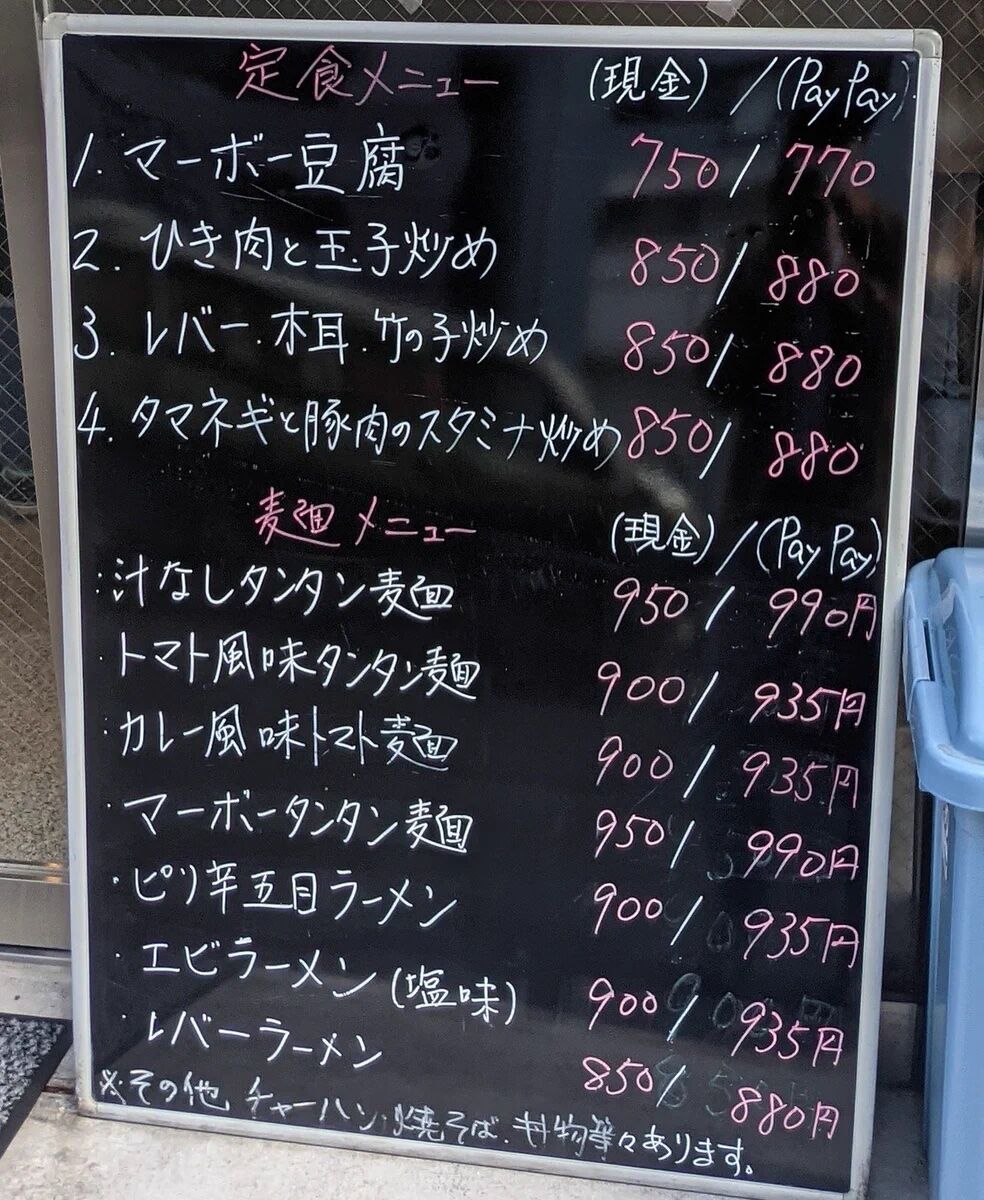 定食メニュー (現金) / (PayPay)
1. マーボー豆腐 750 / 770
2. ひき肉と玉子炒め 850 / 880
3. レバー.木耳.竹の子炒め 850 / 880
4. タマネギと豚肉のスタミナ炒め 850 / 880
麺メニュー (現金) / (PayPay)
・汁なしタンタン麺 950 / 990円
・トマト風味タンタン麺 900 / 935円
・カレー風味トマト麺 900 / 935円
・マーボータンタン麺 950 / 990円
・ピリ辛五目ラーメン 900 / 935円
・エビラーメン (塩味) 900 / 935円
・レバーラーメン 850 / 880円
※その他 チャーハン.焼そば.丼物等々あります。